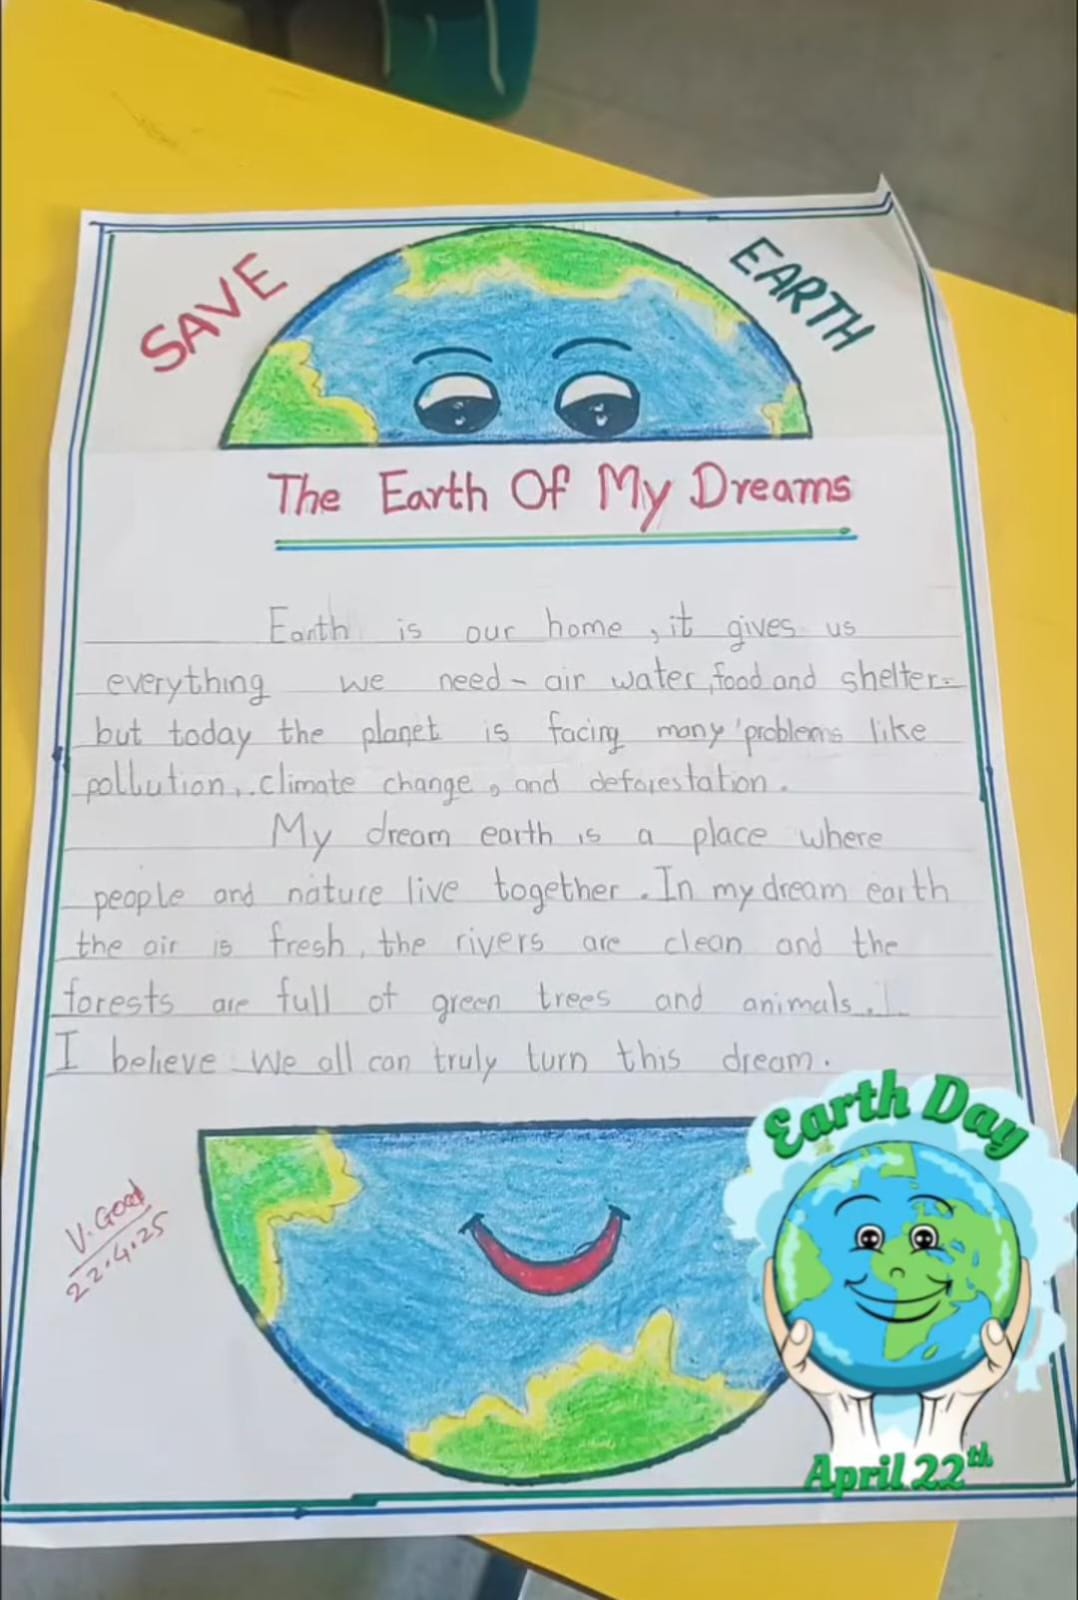 SAVE EARTH
The Earth Of My Dreams
Earth is our home, it gives us
everything we need - air water, food and shelter-
but today the planet is facing many problems like
pollution, climate change, and deforestation.
My dream earth is a place where
people and nature live together. In my dream earth
the air is fresh, the rivers are clean and the
forests are full of green trees and animals.
I believe we all can truly turn this dream.
V. Good
22.4.25
Earth Day
April 22th